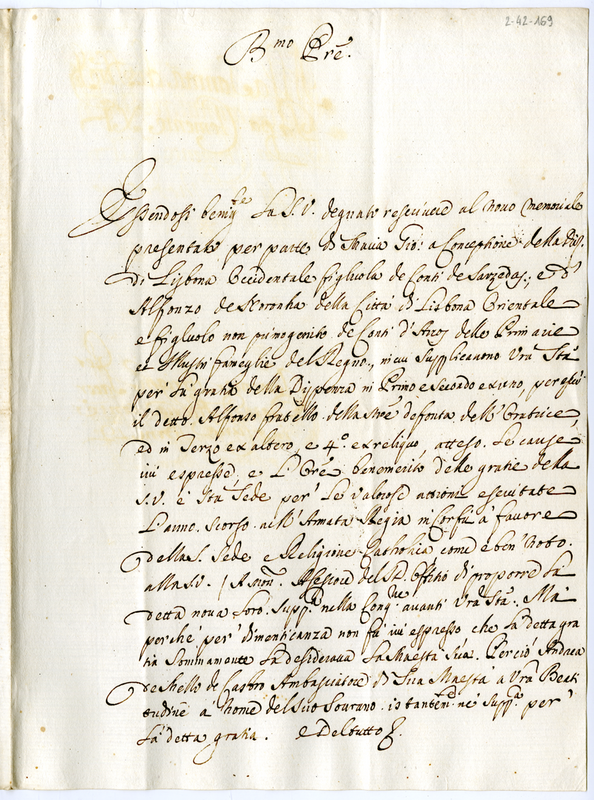 2-42-169
B.mo Pre.
Essendosi benig.te La S.V. degnata rescrivere al novo Memoriale
presentato per parte di Maria Gio: a Conceptione della Dioc.
di Lisbona Occidentale figliuola de Conti de Sarzedas, e d'
Alfonzo de Noronha della Città di Lisbona Orientale
e figliuolo non primogenito de Conti d'Arcos delle Primarie
et Illustri fameglie del Regno, in cui Supplicavono Vra Stà
per La gratia della Dispenza in Primo e Secondo ex uno, per
il detto Alfonso fratello della defonta dell' Oratrice,
ed in Terzo ex altero, e 4.º ex reliquo, atteso Le cause
ivi espresse, e L'Ore benemerito delle gratie della
S.V. e Sta Sede per Le valorose attioni eseguitate
L'anno scorso nell' Armata Regia in Corfù a favore
della S. Sede e Religione Catholica come è ben noto
alla S.V. / A Mon. Asessore del S. Offitio di proporre La
detta nova Loro Supp.ca nella Cong.ne avanti Vra Stà. Mà
perche per dimenticanza non fù ivi espresso che La detta gra
tia Sommamente La desiderava La Maestà Sua. Perciò Andrea
de Mello de Castro Ambasciatore di Sua Maestà a Vra Beati
tudine a nome del Suo Sourano istantem.te ne Supp.ca per
La detta gratia. e del tutto &.